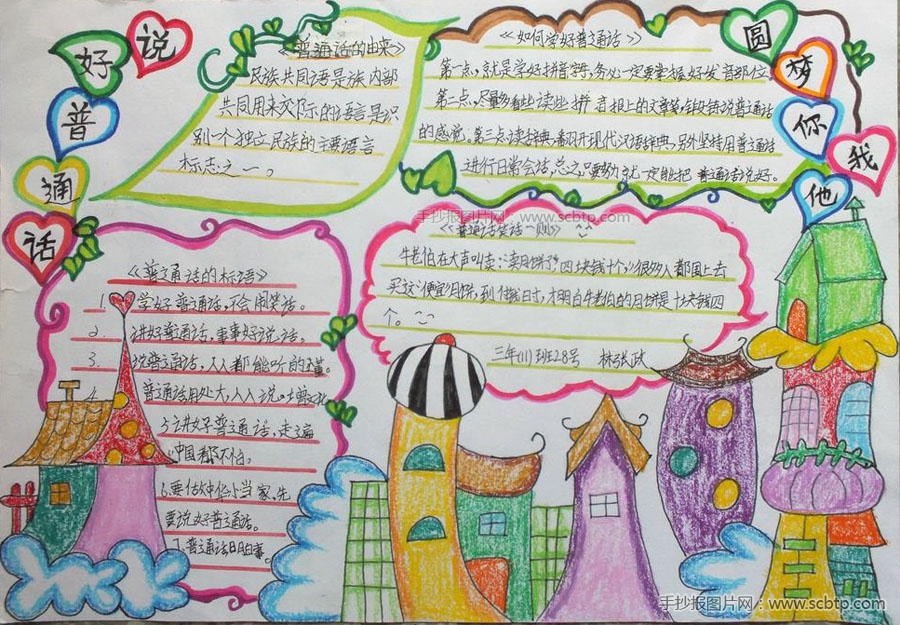 说
好
普
通
话
圆
梦
你
我
他
《普通话的由来》
民族共同语是族内部
共同用来交际的语言是识
别一个独立民族的主要语言
标志之一。
《如何学好普通话》
第一点,就是学好拼音字,务必一定要掌握好发音部位
第二点,尽量多看些读些拼音报上的文章
的感觉。第三点读辞典,翻开现代汉语辞典,另外坚持用普通话
进行日常会话,总之,要努力就一定能把普通话说好。
手抄报图片网 www.scbtp.com
《普通话笑话一则》
牛老伯在大声叫卖:卖月饼了,四块钱十个,很多人都围上去
买这便宜月饼,到付钱时,才明白牛老伯的月饼是十块钱四
个。
三年(11)班28号 林
《普通话的标语》
1. 学好普通话,不会闹笑话。
2. 讲好普通话,事事好说话。
3. 说普通话,人人都能听的懂。
4. 普通话用处大,人人说
5. 讲好普通话,走遍
中国都不怕。
6. 要
当家,先
要说好普通话。
7. 普通话
手抄报图片网:www.scbtp.com